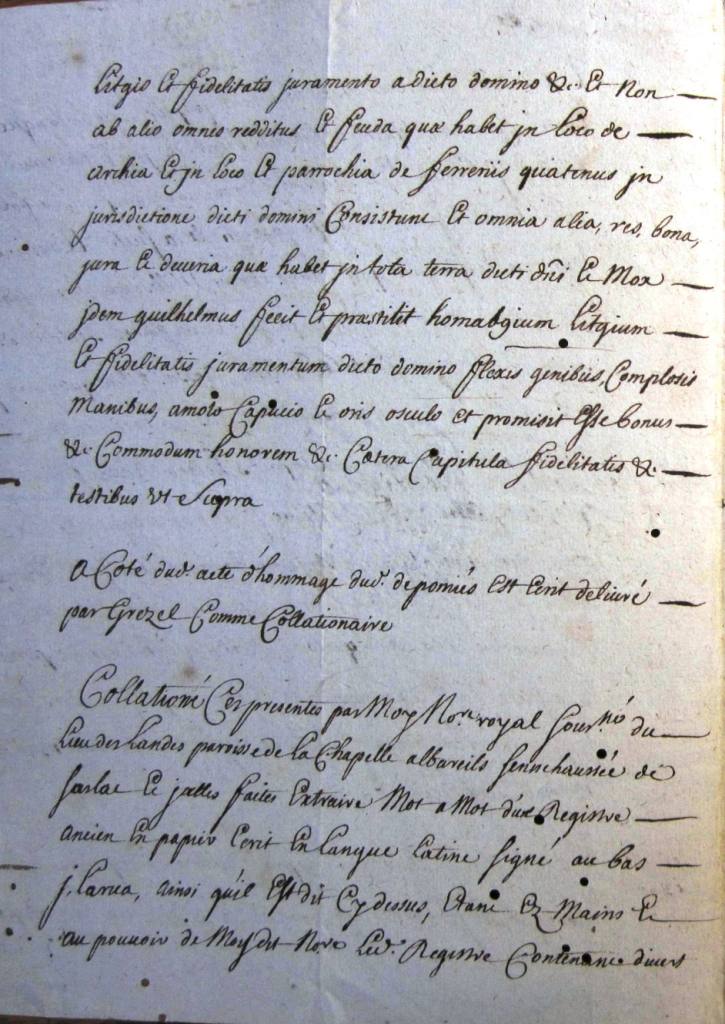 Litgio Et fidelitatis juramento a dicto domino &c. Et Non
ab alio omnes redditus Et feuda quæ habet jn Loco de
archia Et jn Loco Et parrochia de ferreriis quatenus jn
jurisdictione dicti domini Consistunt Et omnia alia, res, bona,
jura Et deveria quæ habet jn tota terra dicti dñi Et Mox
jdem guilhelmus fecit Et præstitit homabgium Litgium
Et fidelitatis juramentum dicto domino flexis genibus, Complosis
Manibus, amoto Capucio Et oris osculo et promisit Esse bonus
&c. Commodum honorem &c. Cætera Capitula fidelitatis &c.
testibus vt Supra
a Coté dud. acte d'hommage dud. de pomiés Est Ecrit deliuré
par Grezel Comme Collationaire
Collationé Ces presentes par Moy No.re royal sous.né du
Lieu des Landes paroisse de la Chapelle albareils sennchaussée de
sarlat Et jcelles faites Extraire Mot a Mot d'un Registre
ancien En papier Ecrit En Langue Latine signé au bas
j. Larua, ainsi qu'il Est dit Cy dessus, Etant Ez Mains Et
au pouuoir de Moy dit No.re Led. Registre Contenant divers